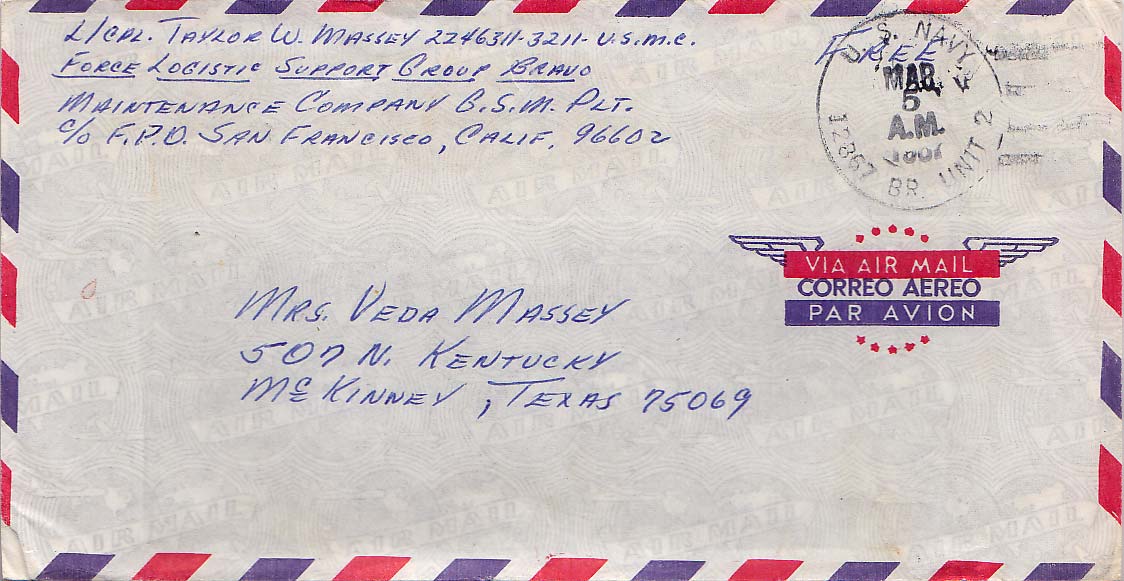 L/CPL. TAYLOR W. MASSEY 2246311-3211- U.S.M.C.
FORCE LOGISTIC SUPPORT GROUP BRAVO
MAINTENANCE COMPANY G.S.M. PLT.
c/o F.P.O. SAN FRANCISCO, CALIF. 96602
FREE
U.S. NAVY
MAR
5
A.M.
12867 BR. UNIT 2
VIA AIR MAIL
CORREO AEREO
PAR AVION
MRS. VEDA MASSEY
507 N. KENTUCKY
McKINNEY, TEXAS 75069